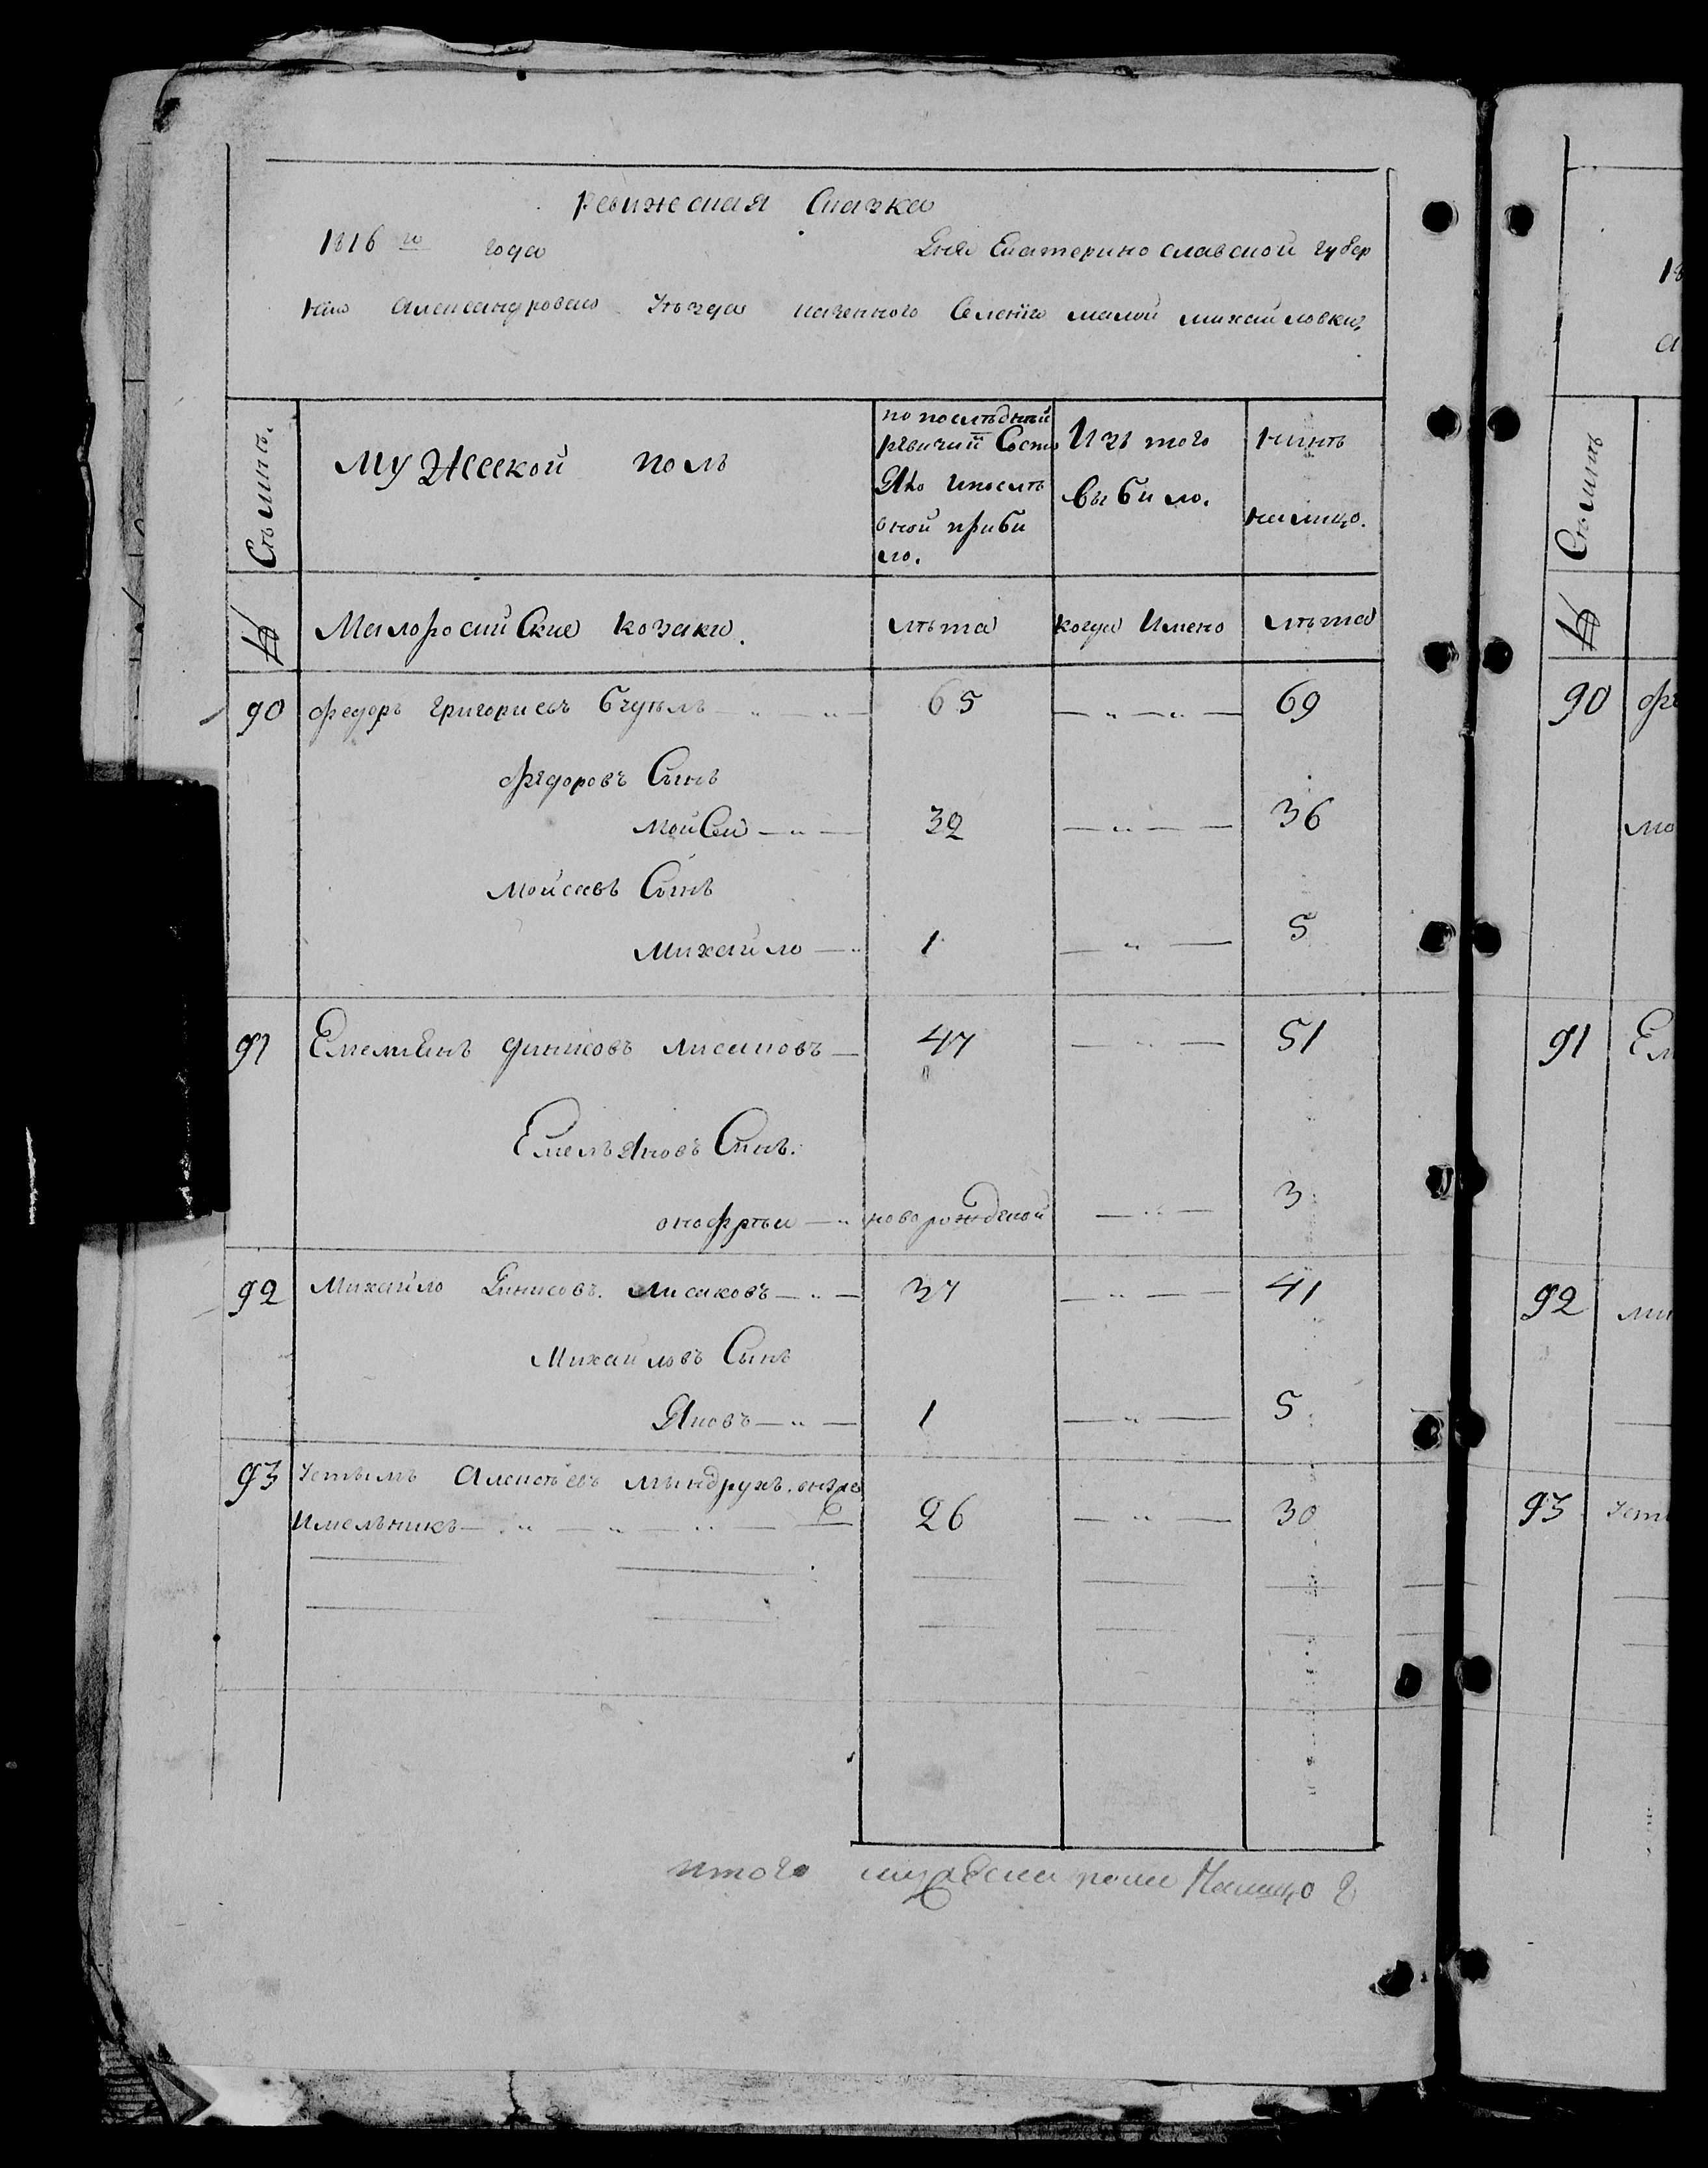 ревижсная Сказка
1816 го года Дня Екатеринославской губер
ніи Александровско Уъзда казенного Селенія малой михайловки,
Съмить. мужеской поль по послъдньй ревизий Состо Яло ипослъ оной прибило. Изъ того выбило. нинъ налицо.
№ Малоросийские козаки. лъта когда Имено лъта
90 федоръ григориевъ 65 — „ — „ — 69
федоровъ Сынъ
мойсей — „ — 32 — „ — — 36
Мойсеевъ Сынъ
михайло — „ 1 — „ — 5
91 Емельянъ динисовъ лисаковъ — 47 — „ — 51
Емельяновъ Сынъ.
онофръи — „ новорожденой — „ — 3
92 Михайло Динисовъ. лисаковъ — „ — 37 — „ — — 41
Михайловъ Сынъ
Яковъ — „ — 1 — „ — 5
93 Устымъ Алексъевъ мындрухъ. онже
Имельникъ — „ — „ — „ — 26 — „ — 30
итого мужеска пола Налицо 9
18
а
Съмить
№
90 фе
мо
91 Ем
92 ми
93 Усты